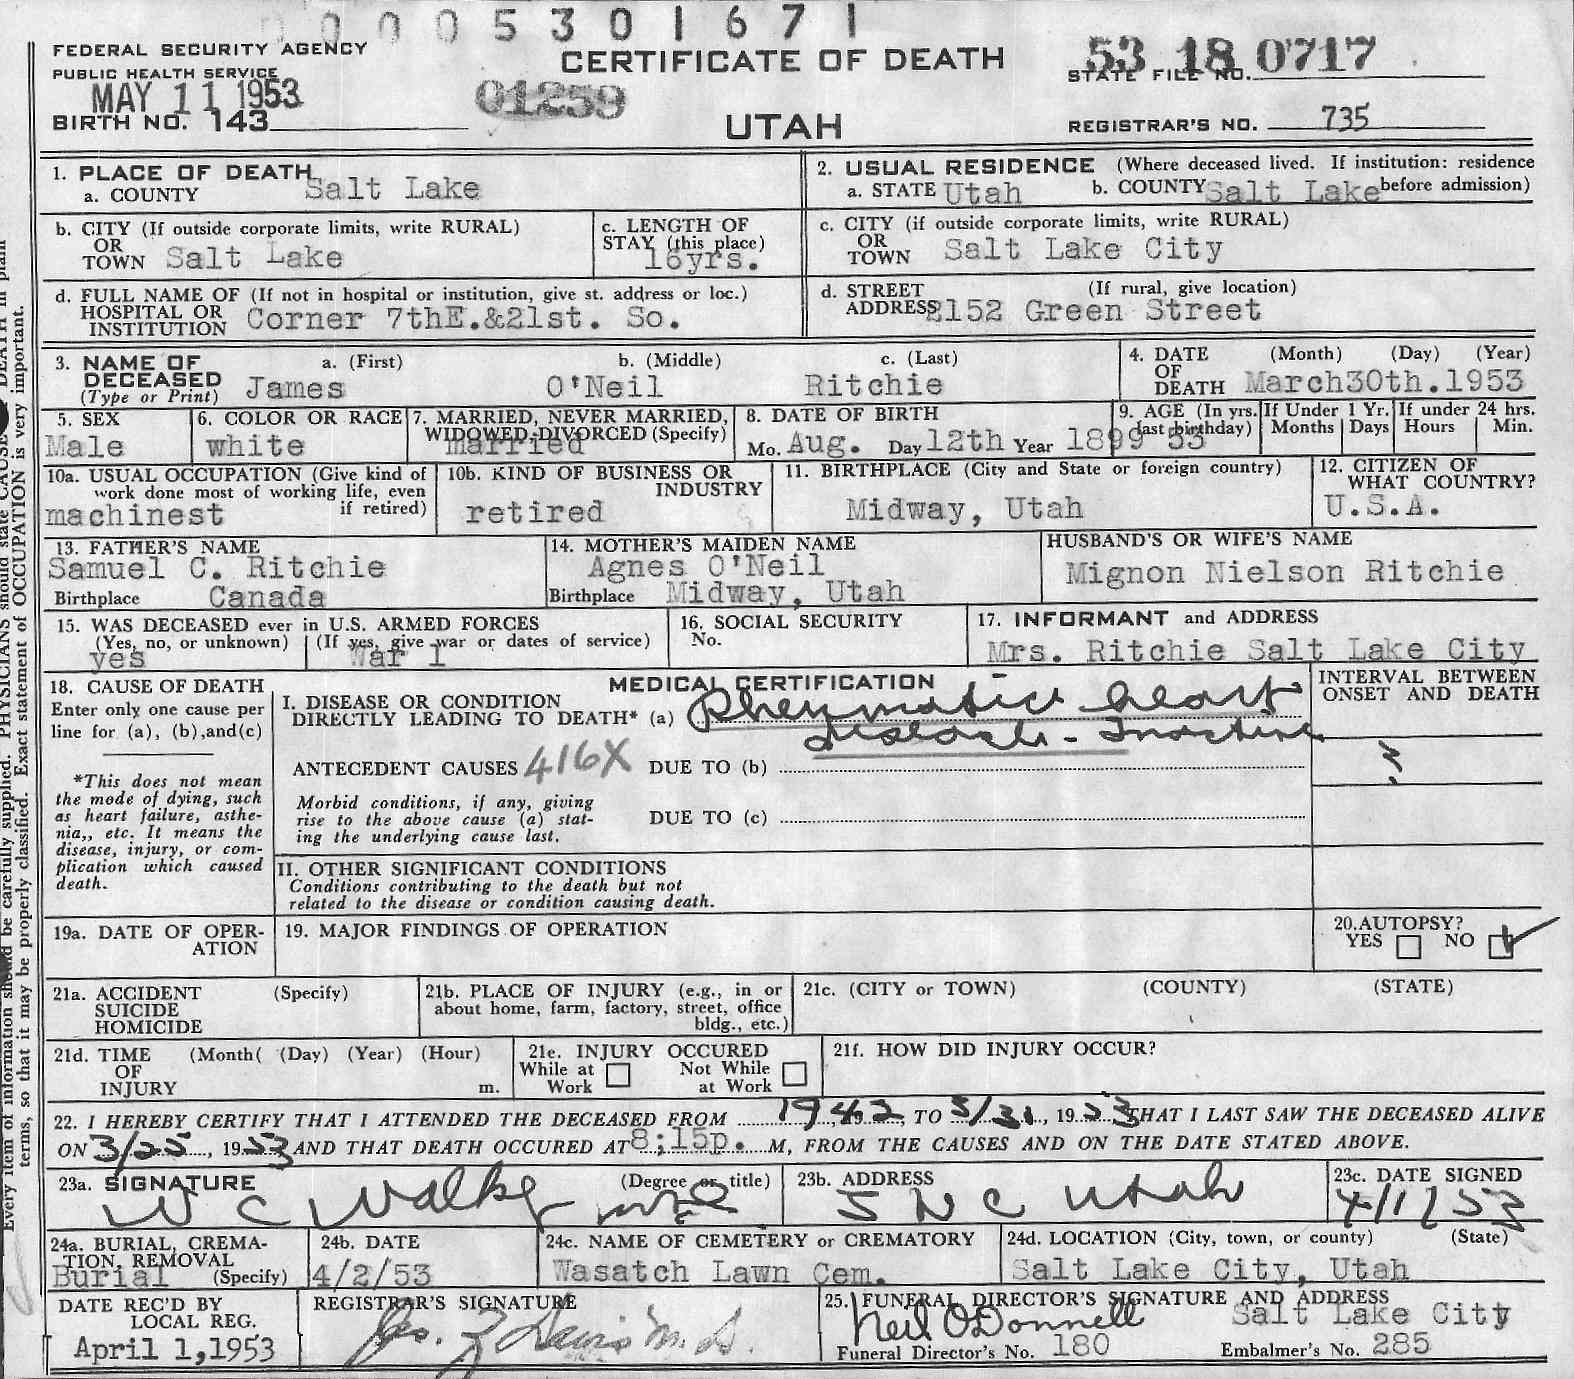 0005301671
FEDERAL SECURITY AGENCY
PUBLIC HEALTH SERVICE
MAY 11 1953
BIRTH NO. 143
01259
CERTIFICATE OF DEATH
UTAH
53 18 0717
STATE FILE NO.
REGISTRAR'S NO. 735
1. PLACE OF DEATH
a. COUNTY Salt Lake
2. USUAL RESIDENCE (Where deceased lived. If institution: residence
a. STATE Utah b. COUNTY Salt Lake before admission)
b. CITY (If outside corporate limits, write RURAL)
OR
TOWN Salt Lake
c. LENGTH OF
STAY (this place)
16yrs.
c. CITY (if outside corporate limits, write RURAL)
OR
TOWN Salt Lake City
d. FULL NAME OF (If not in hospital or institution, give st. address or loc.)
HOSPITAL OR
INSTITUTION Corner 7thE.&21st. So.
d. STREET (If rural, give location)
ADDRESS 2152 Green Street
3. NAME OF a. (First) b. (Middle) c. (Last)
DECEASED
(Type or Print) James O'Neil Ritchie
4. DATE (Month) (Day) (Year)
OF
DEATH March30th.1953
5. SEX
Male
6. COLOR OR RACE
white
7. MARRIED, NEVER MARRIED,
WIDOWED, DIVORCED (Specify)
married
8. DATE OF BIRTH
Mo. Aug. Day 12th Year 1899
9. AGE (In yrs. last birthday)
53
If Under 1 Yr.
Months Days
If under 24 hrs.
Hours Min.
10a. USUAL OCCUPATION (Give kind of
work done most of working life, even
if retired)
machinest
10b. KIND OF BUSINESS OR
INDUSTRY
retired
11. BIRTHPLACE (City and State or foreign country)
Midway, Utah
12. CITIZEN OF
WHAT COUNTRY?
U.S.A.
13. FATHER'S NAME
Samuel C. Ritchie
Birthplace Canada
14. MOTHER'S MAIDEN NAME
Agnes O'Neil
Birthplace Midway, Utah
HUSBAND'S OR WIFE'S NAME
Mignon Nielson Ritchie
15. WAS DECEASED ever in U.S. ARMED FORCES
(Yes, no, or unknown) (If yes, give war or dates of service)
yes War 1
16. SOCIAL SECURITY
No.
17. INFORMANT and ADDRESS
Mrs. Ritchie Salt Lake City
18. CAUSE OF DEATH
Enter only one cause per
line for (a), (b),and(c)
*This does not mean
the mode of dying, such
as heart failure, asthe-
nia,, etc. It means the
disease, injury, or com-
plication which caused
death.
MEDICAL CERTIFICATION
I. DISEASE OR CONDITION
DIRECTLY LEADING TO DEATH* (a) Rheumatic heart
disease - Inactive
ANTECEDENT CAUSES 416X DUE TO (b)
Morbid conditions, if any, giving
rise to the above cause (a) stat-
ing the underlying cause last.
DUE TO (c)
INTERVAL BETWEEN
ONSET AND DEATH
?
II. OTHER SIGNIFICANT CONDITIONS
Conditions contributing to the death but not
related to the disease or condition causing death.
19a. DATE OF OPER-
ATION
19. MAJOR FINDINGS OF OPERATION
20.AUTOPSY?
YES NO
21a. ACCIDENT (Specify)
SUICIDE
HOMICIDE
21b. PLACE OF INJURY (e.g., in or
about home, farm, factory, street, office
bldg., etc.)
21c. (CITY or TOWN) (COUNTY) (STATE)
21d. TIME (Month( (Day) (Year) (Hour)
OF
INJURY m.
21e. INJURY OCCURED
While at Work Not While at Work
21f. HOW DID INJURY OCCUR?
22. I HEREBY CERTIFY THAT I ATTENDED THE DECEASED FROM 1942, TO 3/31, 1953 THAT I LAST SAW THE DECEASED ALIVE
ON 3/25, 1953 AND THAT DEATH OCCURED AT 8;15p. M, FROM THE CAUSES AND ON THE DATE STATED ABOVE.
23a. SIGNATURE (Degree or title)
W C Walker MD
23b. ADDRESS
S L C Utah
23c. DATE SIGNED
4/1/53
24a. BURIAL, CREMA-
TION, REMOVAL
Burial (Specify)
24b. DATE
4/2/53
24c. NAME OF CEMETERY or CREMATORY
Wasatch Lawn Cem.
24d. LOCATION (City, town, or county) (State)
Salt Lake City, Utah
DATE REC'D BY
LOCAL REG.
April 1,1953
REGISTRAR'S SIGNATURE
Davis M.D.
25. FUNERAL DIRECTOR'S SIGNATURE AND ADDRESS
Neil O'Donnell Salt Lake City
Funeral Director's No. 180 Embalmer's No. 285
Every item of information should be carefully supplied. PHYSICIANS should state CAUSE OF DEATH in plain
terms, so that it may be properly classified. Exact statement of OCCUPATION is very important.